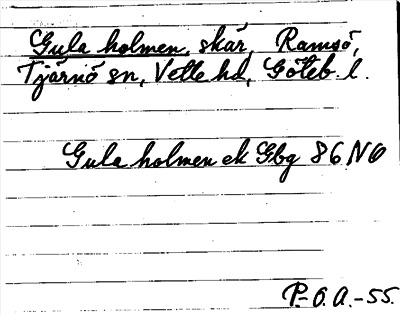 Gula holmen, skär, Ramsö,
Tjärnö sn, Vette hd, Göteb. l.
Gula holmen ek Gbg 86 NO
P.-O.A.-55.